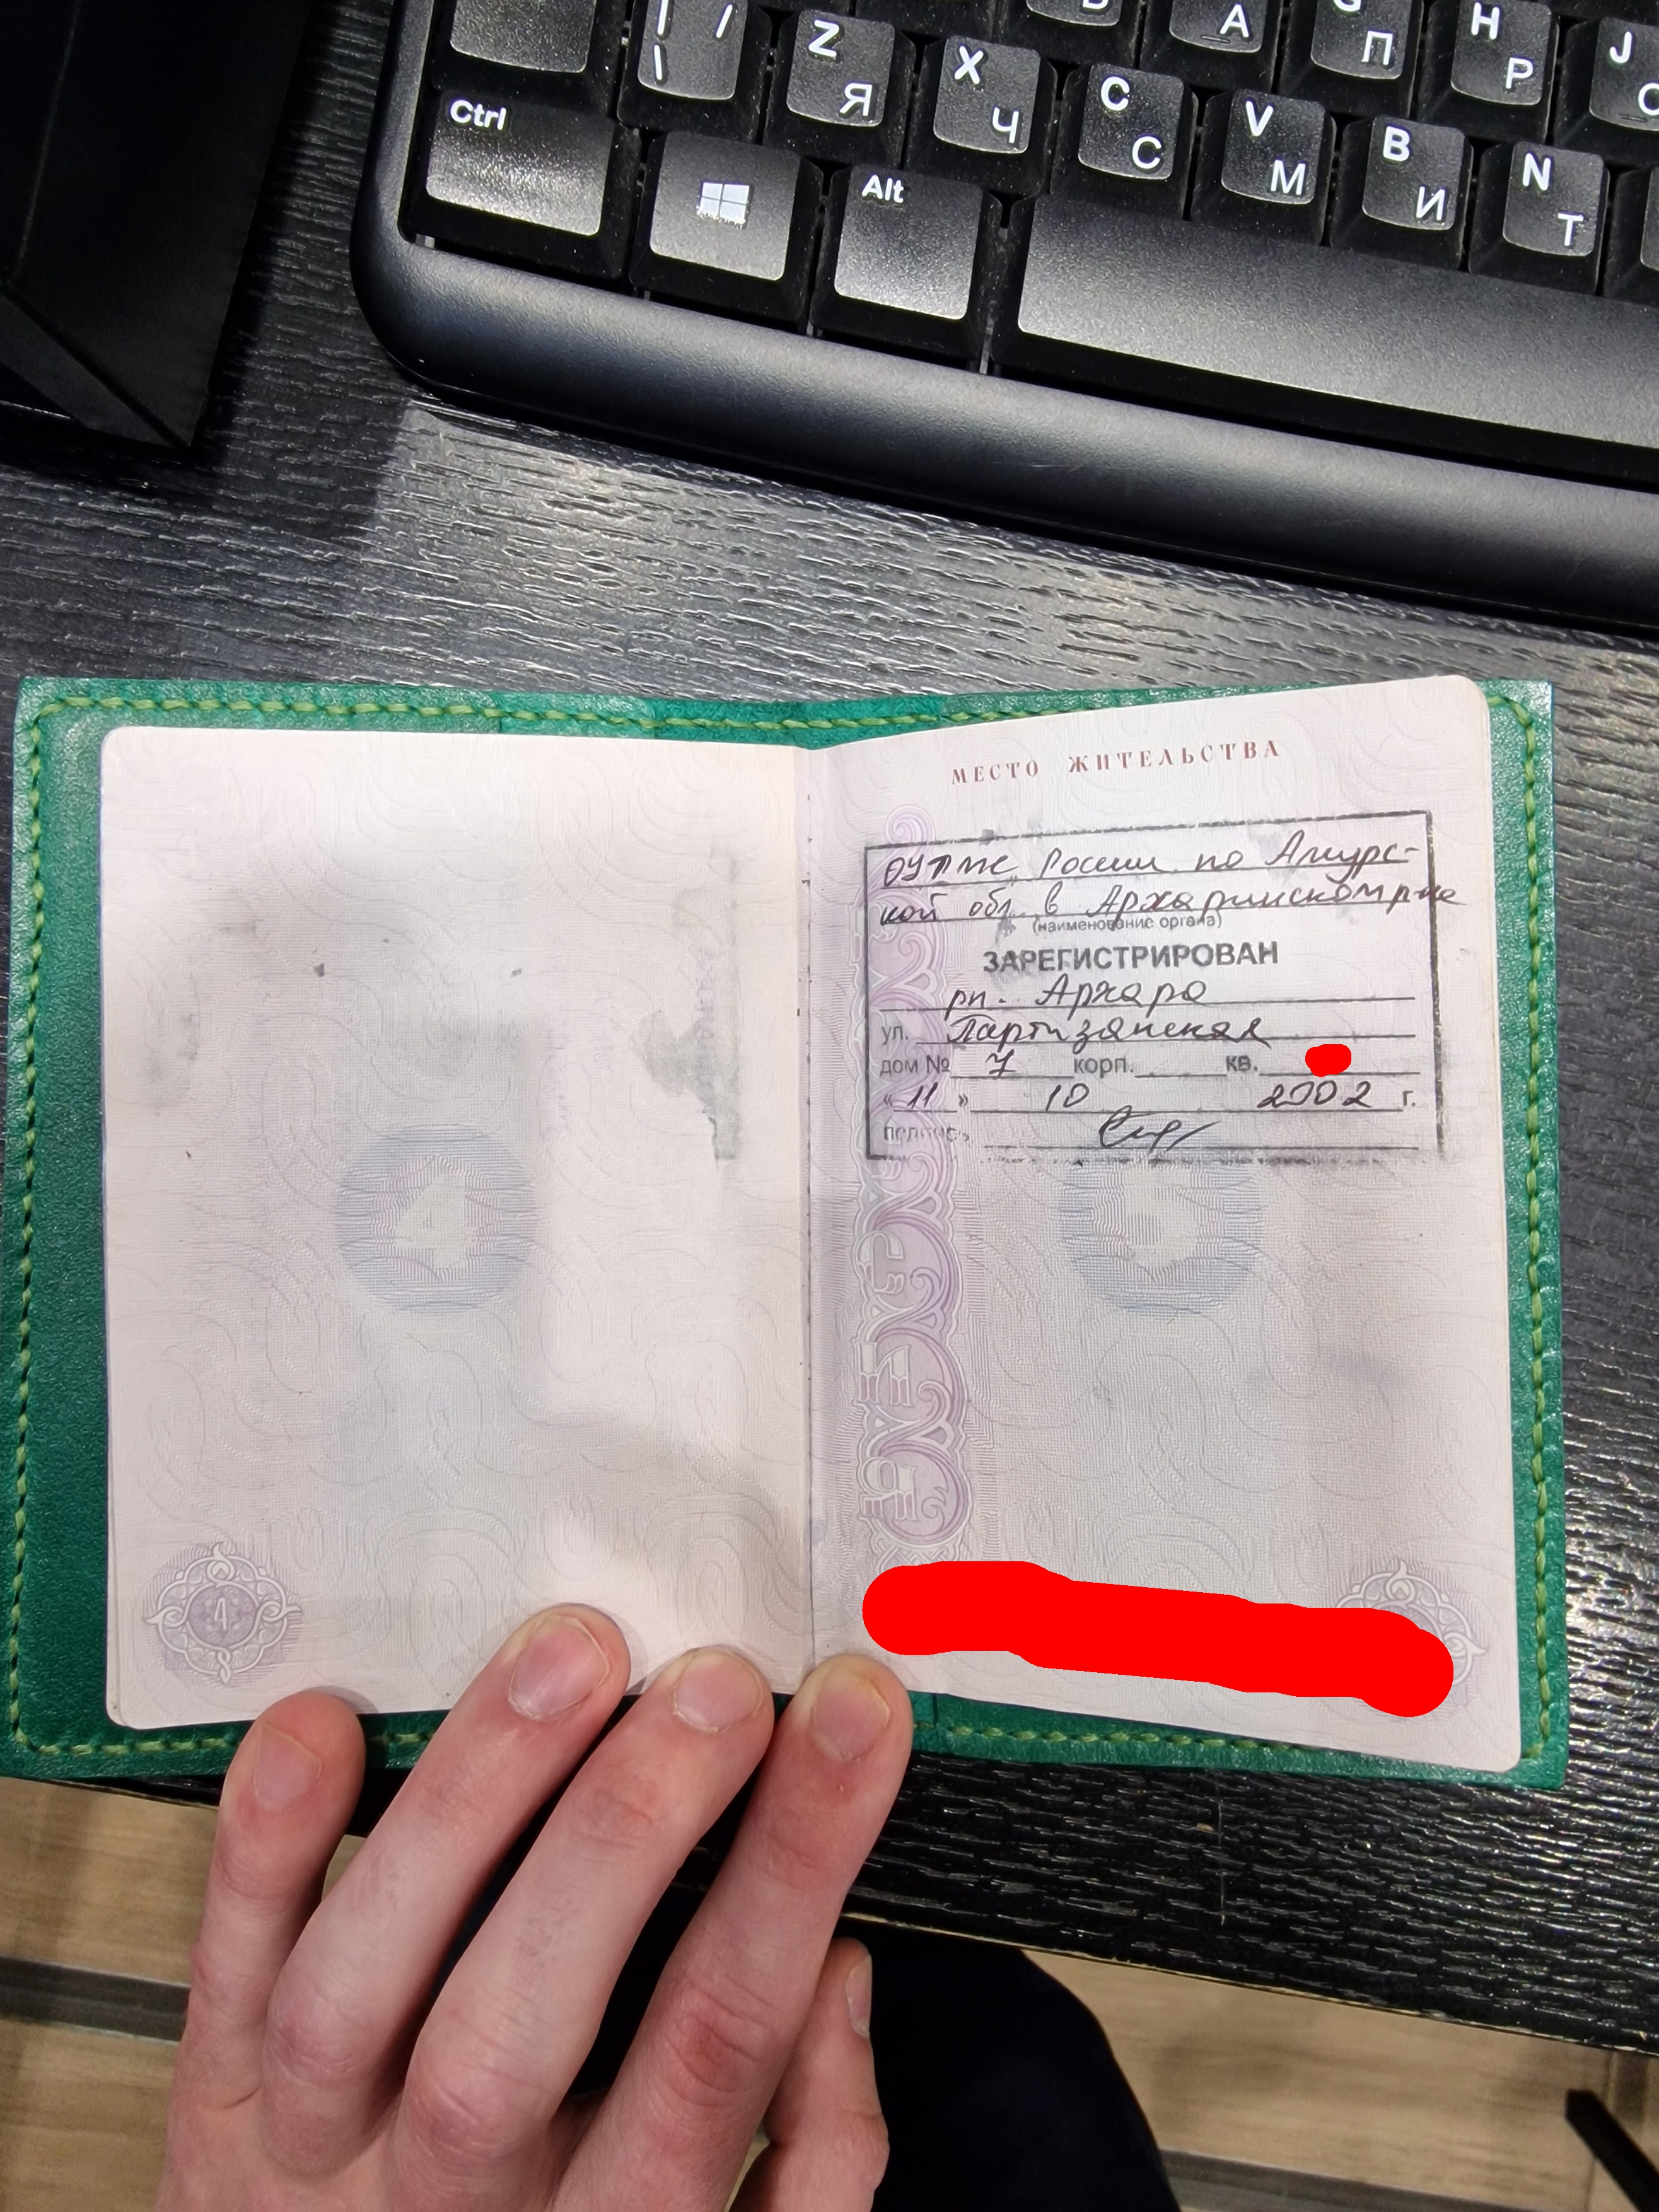 Ctrl
Alt
Z Я
X Ч
C С
V М
B И
N Т
А
П
H Р
J
МЕСТО ЖИТЕЛЬСТВА
России по Амурс-
кой обл. в Архаринском р-не
(наименование органа)
ЗАРЕГИСТРИРОВАН
рп. Архара
ул. Партизанская
дом № 7 корп. кв.
"11" 10 2002 г.
подпись
4
5
4